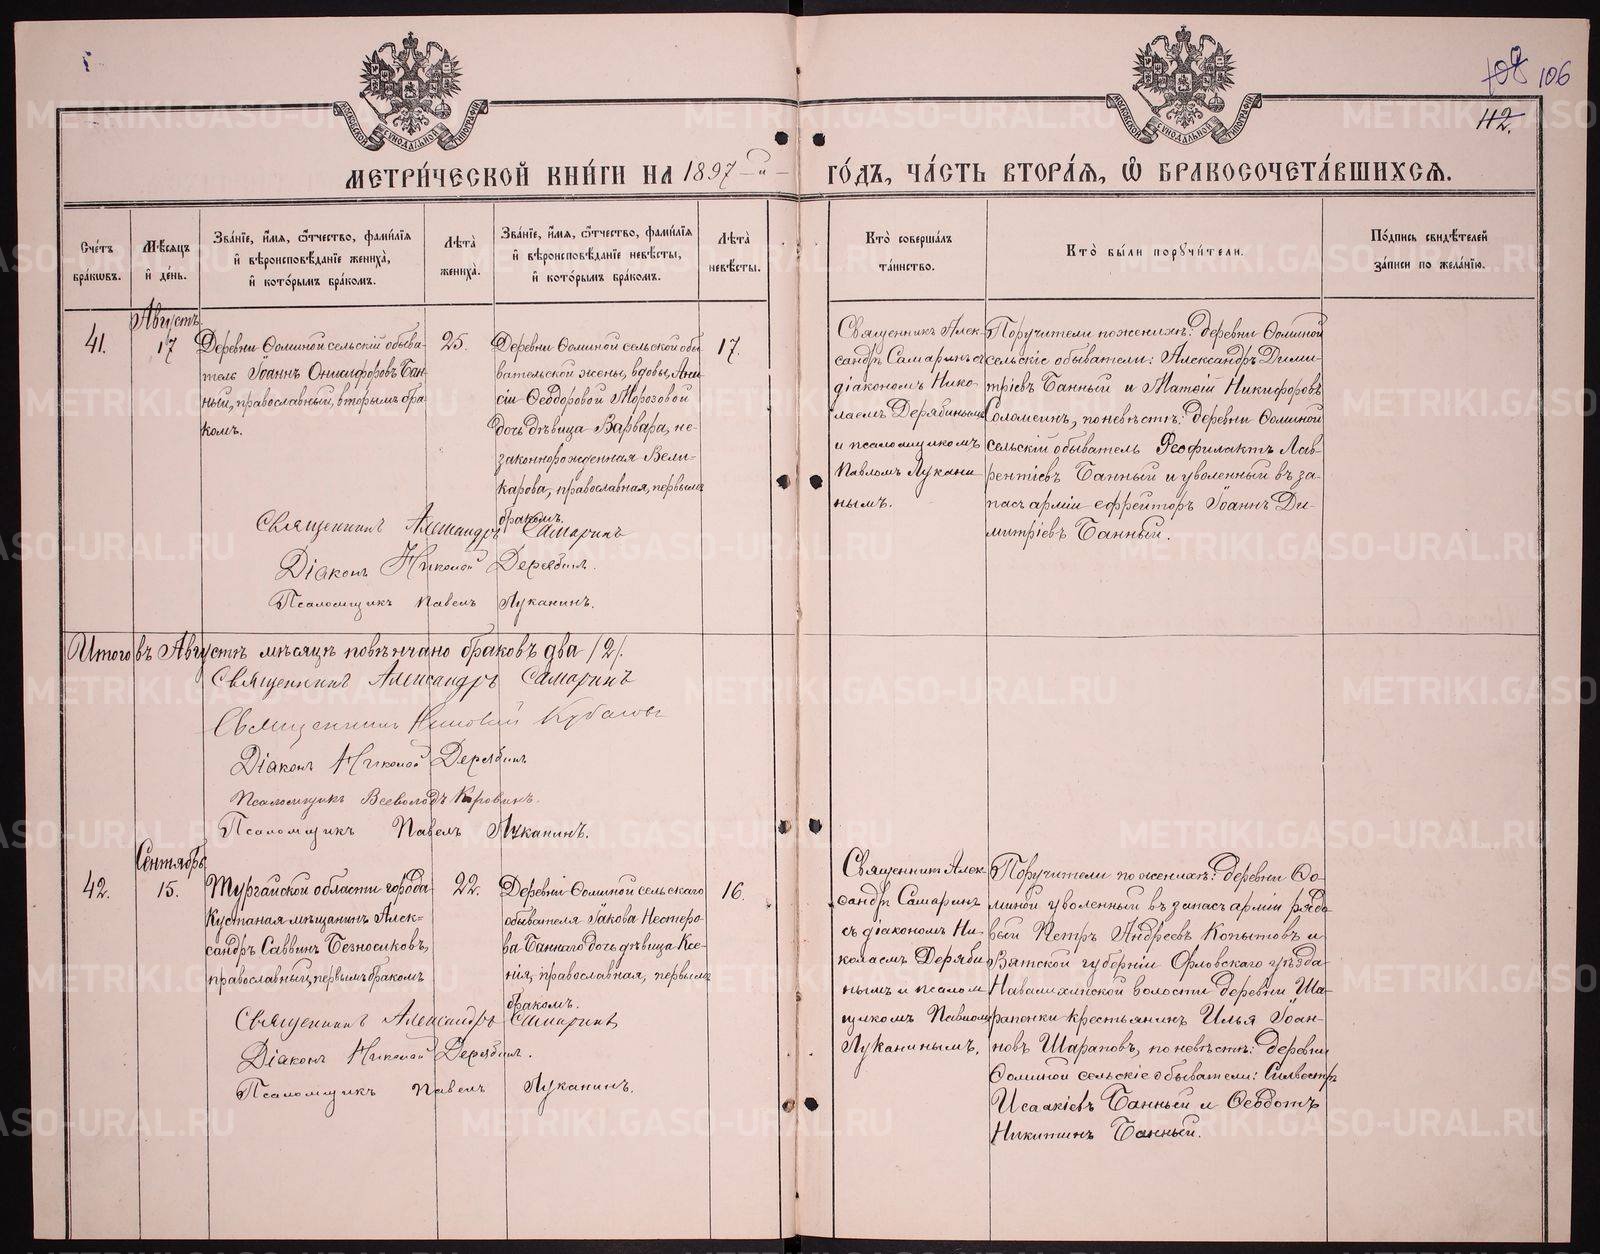 106
112.
МЕТРИ́ЧЕСКОЙ КНИ́ГИ НА 1897-й ГО́ДЪ, ЧА́СТЬ ВТОРА́Я, Ѡ БРАКОСОЧЕТА́ВШИХСЯ.
Сче́тъ бра́ковъ.
Мѣ́сяцъ и де́нь.
Зва́нїе, и́мя, ѻ́тчество, фами́лїя
и҆ вѣроисповѣ́данїе жениха̀,
и҆ кото́рымъ бра́комъ.
Лѣ́та жениха̀.
Зва́нїе, и́мя, ѻ́тчество, фами́лїя
и҆ вѣроисповѣ́данїе невѣ́сты,
и҆ кото́рымъ бра́комъ.
Лѣ́та невѣ́сты.
Кто̀ соверша́лъ
та́инство.
Кто̀ бы́ли поручи́тели.
По́дпись свидѣ́телей
за́писи по жела́нїю.
41.
Августъ
17
Деревни Ѳоминой сельскій обыва-
тель Іоаннъ Оникифоровъ Бан-
ный, православный, вторымъ бра-
комъ.
25.
Деревни Ѳоминой сельской обы
вательской жены, вдовы, Ани
сіи Ѳеодоровой Морозовой
дочь дѣвица Варвара, не-
законнорожденная Вели-
карова, православная, первымъ
бракомъ.
17.
Священникъ Алек-
сандръ Самаринъ съ
діакономъ Нико-
лаемъ Дерябинымъ
и псаломщикомъ
Павломъ Лукани
нымъ.
Поручители по женихѣ: деревни Ѳоминой
сельскіе обыватели: Александръ Дими-
тріевъ Банный и Матѳій Никифоровъ
Соломеинъ, по невѣстѣ: деревни Ѳоминой
сельскій обыватель Ѳеофилактъ Лав-
рентіевъ Банный и уволенный въ за-
пасъ арміи ефрейторъ Іоаннъ Ди-
митріевъ Банный.
Священникъ Александръ Самаринъ
Діаконъ Николай Дерябинъ.
Псаломщикъ Павелъ Луканинъ.
Итого въ Августѣ мѣсяцѣ повѣнчано браковъ два /2/.
Священникъ Александръ Самаринъ
Священникъ Николай
Діаконъ Николай Дерябинъ
Псаломщикъ Всеволодъ Коровинъ.
Псаломщикъ Павелъ Луканинъ.
42.
Сентябрь
15.
Тургайской области города
Кустаная мѣщанинъ Алек-
сандръ Саввинъ Безносиковъ,
православный, первымъ бракомъ
22.
Деревни Ѳоминой сельскаго
обывателя Іакова Нестеро
ва Баннаго дочь дѣвица Ксе-
нія, православная, первымъ
бракомъ.
16.
Священникъ Алек-
сандръ Самаринъ
съ діакономъ Ни-
колаемъ Деряби
нымъ и псалом
щикомъ Павломъ
Луканинымъ.
Поручители по женихѣ: деревни Ѳо-
миной уволенный въ запасъ арміи рядо
вый Петръ Андреевъ Копытовъ и
Вятской губерніи Орловскаго уѣзда
волости деревни Ша-
рапонки крестьянинъ Илья Іоан-
новъ Шараповъ, по невѣстѣ: деревни
Ѳоминой сельскіе обыватели: Сильвестръ
Исаакіевъ Банный и Ѳеодотъ
Никитинъ Банный.
Священникъ Александръ Самаринъ
Діаконъ Николай Дерябинъ.
Псаломщикъ Павелъ Луканинъ.